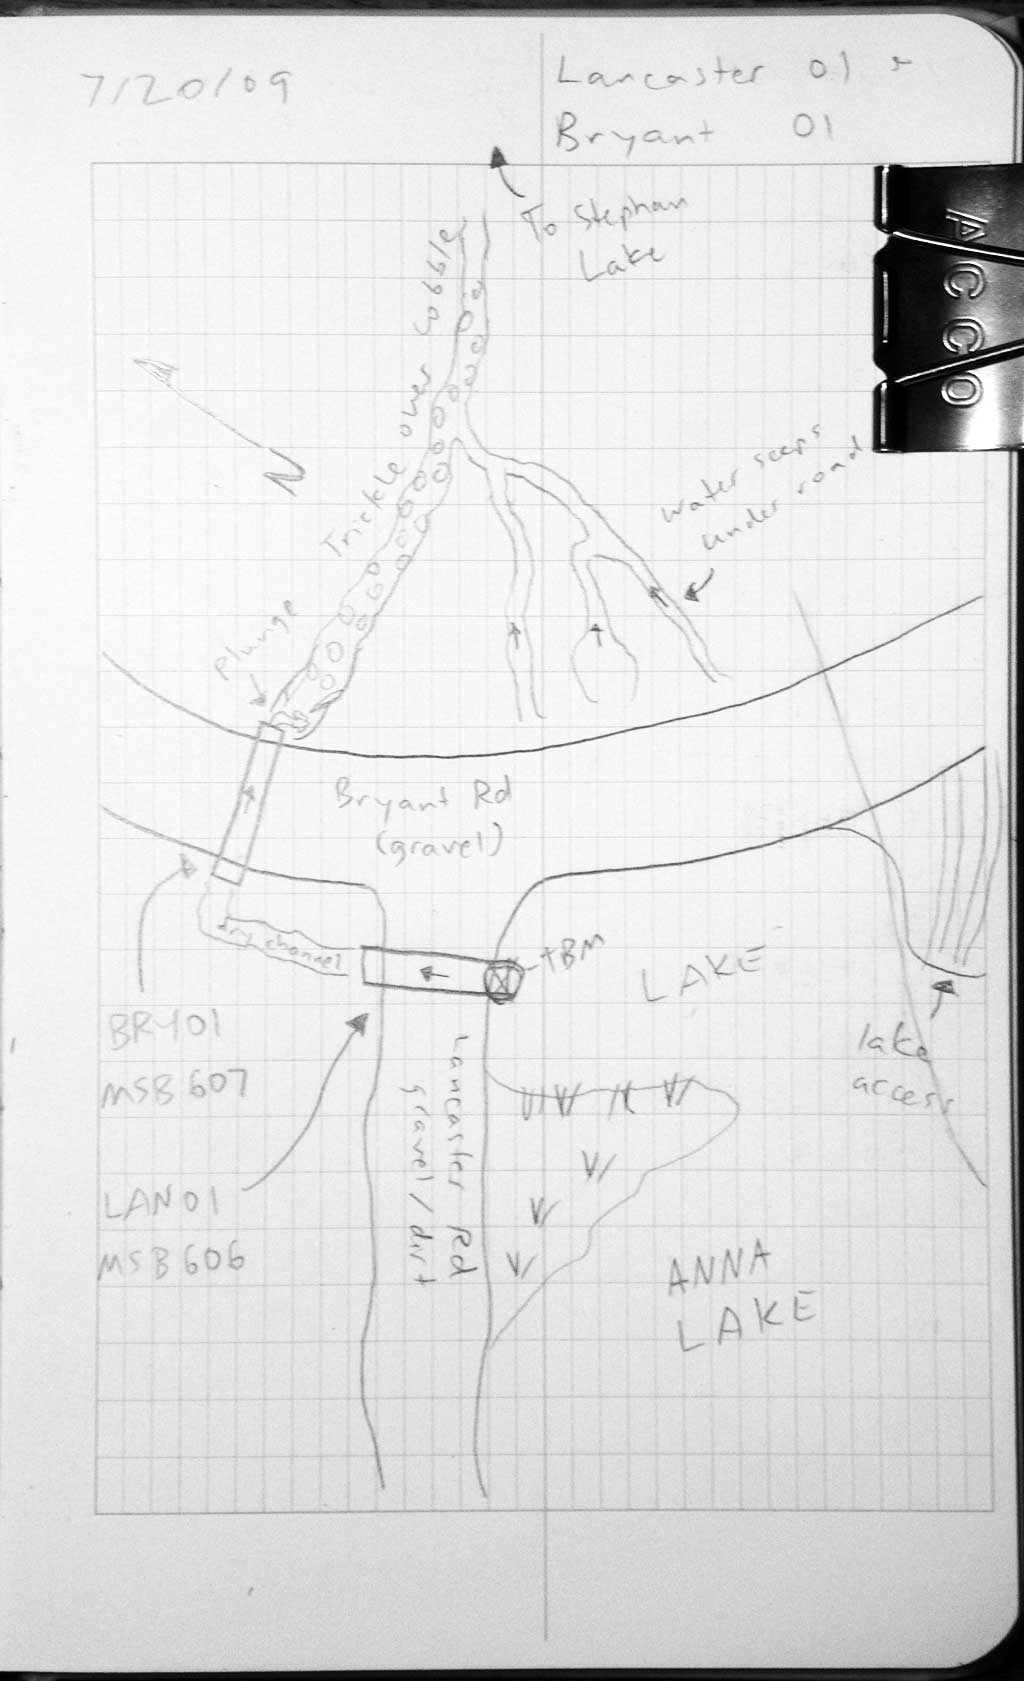 7/20/09
Lancaster 01 &
Bryant 01
To Stephan
Lake
Trickle over cobble
N
water seeps
under road
Plunge
Bryant Rd
(gravel)
dry channel
TBM
LAKE
lake
access
BRY01
MSB607
LAN01
MSB606
Lancaster Rd
gravel/dirt
ANNA
LAKE
ACCO